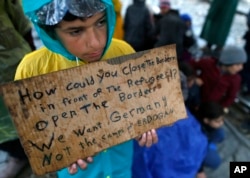 How could You close The borders
in front of the Refugees!?
Open The Borders
We want Germany
No the camp of ERDOGAN
AP